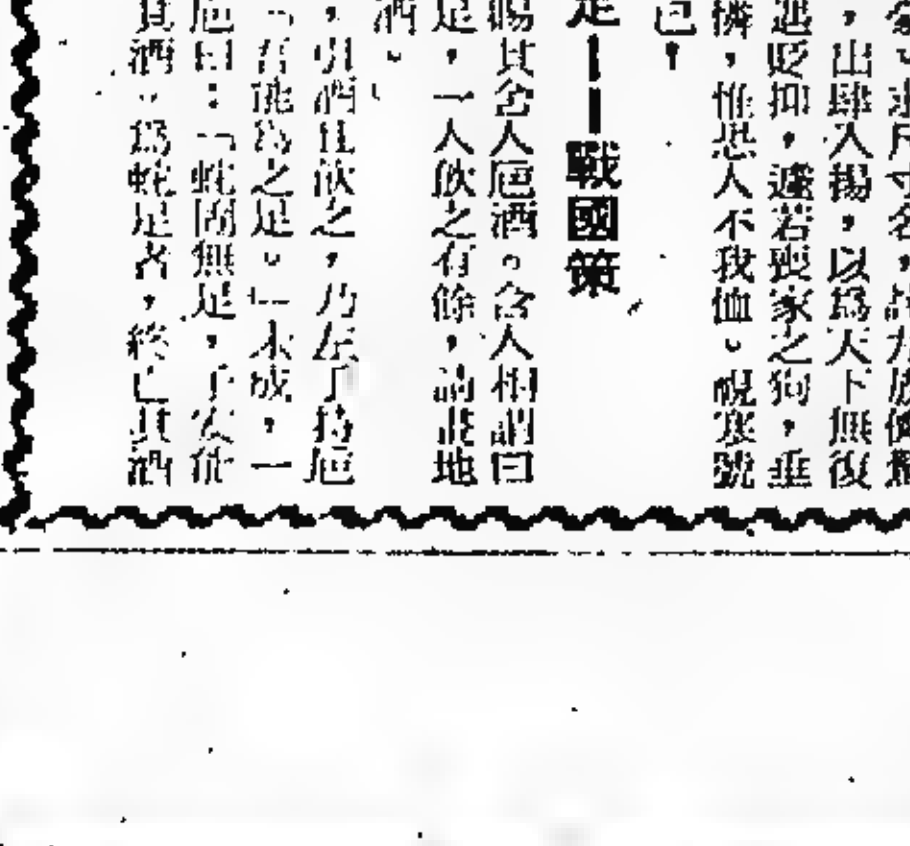 ，出肆入揚，以爲天下無復
貶抑，遽若喪家之狗，垂
憐，惟恐人不我恤。覩寒號
已！
足——戰國策
賜其舍人卮酒。舍人相謂曰
足，一人飲之有餘，請畫地
酒。
，引酒且飲之，乃左手持卮
「吾能爲之足。」未成，一
卮曰：「蛇固無足，子安能
其酒。爲蛇足者，終亡其酒